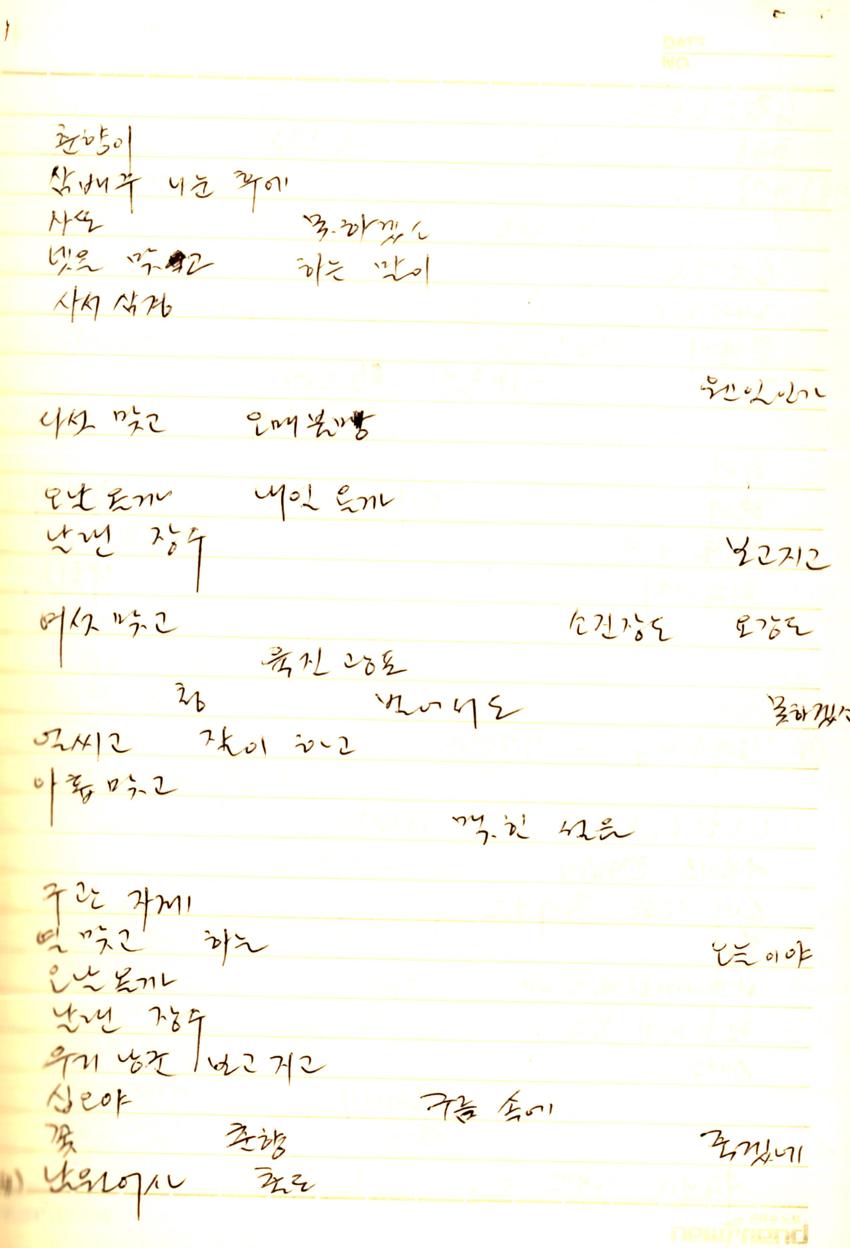 춘향이
삼배주 나눈 후에
사또 못.하겠소
넷을 맞고 하는 말이
사서 삼경
웬 일인가
다섯 맞고 오매불망
오날 올까 내일 올까
날랜 장수 보고지고
여섯 맞고 소진장도 오강도
육진 광포
청 벗어서도 못하겠소
얼씨고 잘이 하고
아홉 맞고
맥.힌 설음
구관 자제
열 맞고 하는 오늘이야
오날 올까
날랜 장수
우리 낭군 보고 지고
십오야 구름 속에
꽃 춘향 죽겠네
남원어사 출도